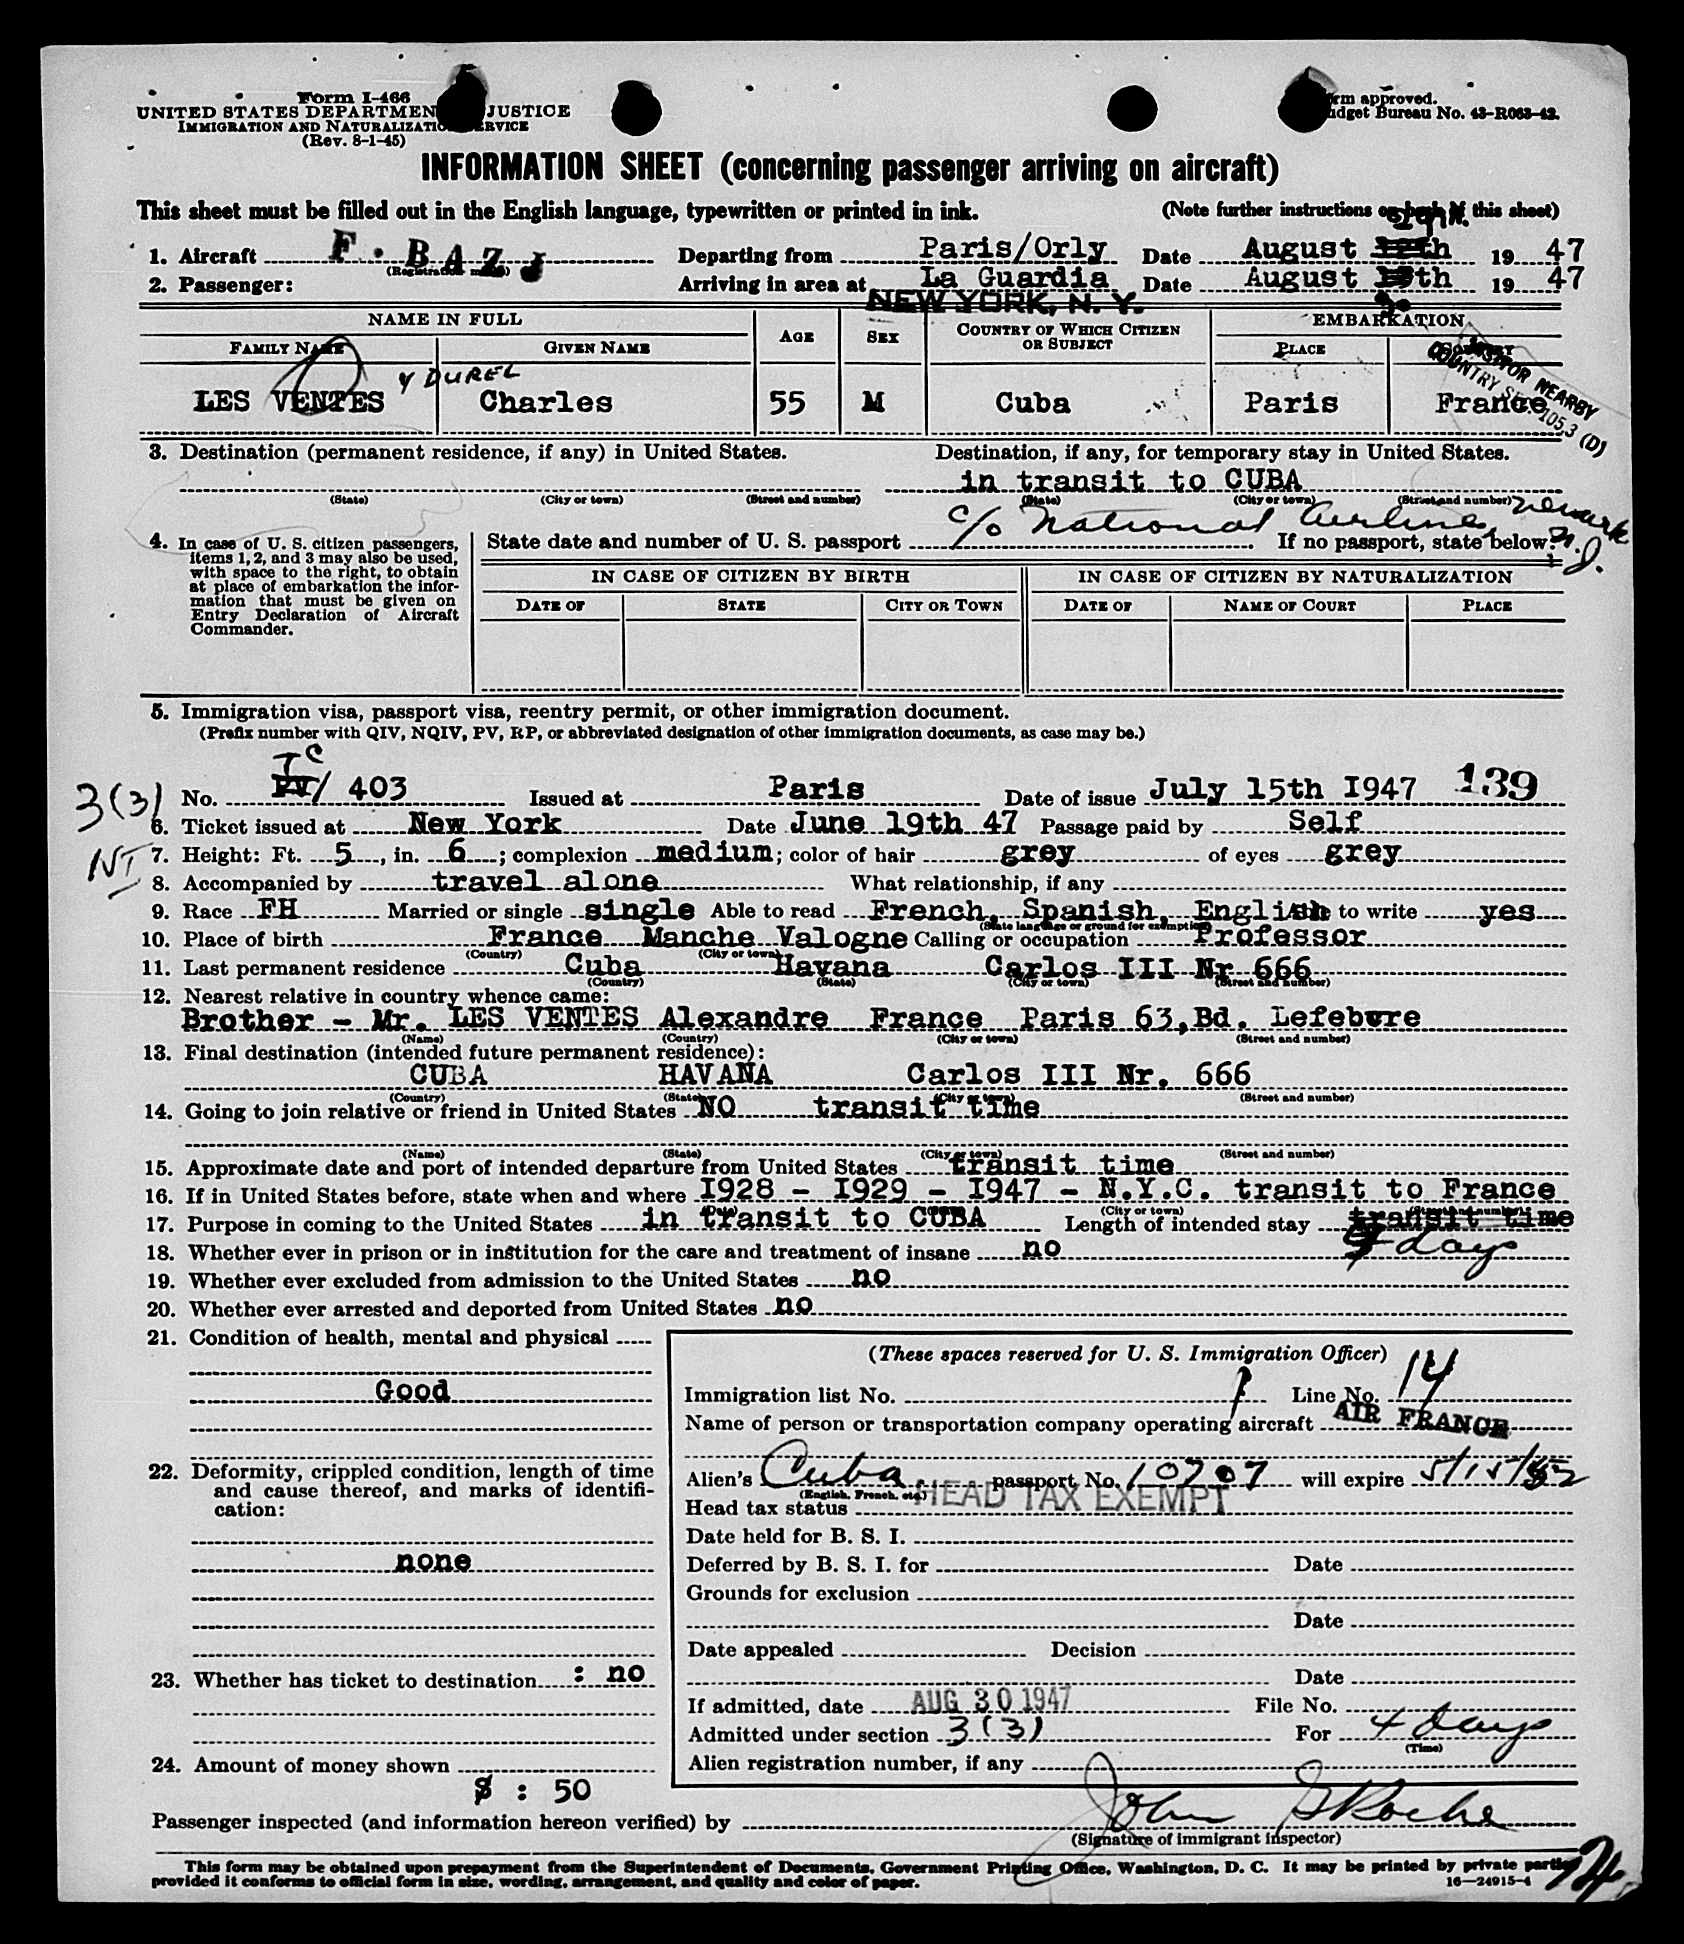 Form I-466
UNITED STATES DEPARTMENT JUSTICE
IMMIGRATION AND NATURALIZATION SERVICE
(Rev. 8-1-45)
Form approved.
Budget Bureau No. 43-R063-42.
INFORMATION SHEET (concerning passenger arriving on aircraft)
This sheet must be filled out in the English language, typewritten or printed in ink. (Note further instructions on back of this sheet)
1. Aircraft F. BAZJ Departing from Paris/Orly Date August 29th. 19 47
(Registration marks)
2. Passenger: Arriving in area at La Guardia Date August 30 th 19 47
NEW YORK, N. Y.
NAME IN FULL AGE SEX COUNTRY OF WHICH CITIZEN OR SUBJECT EMBARKATION
FAMILY NAME GIVEN NAME PLACE COUNTRY
VISITOR NEARBY
COUNTRY SEC. 105.3 (D)
Y DUREL
LES VENTES Charles 55 M Cuba Paris France
3. Destination (permanent residence, if any) in United States. Destination, if any, for temporary stay in United States.
in transit to CUBA
(State) (City or town) (Street and number) (State) (City or town) (Street and number)
c/o National Airlines, Newark N.J.
4. In case of U. S. citizen passengers, items 1, 2, and 3 may also be used, with space to the right, to obtain at place of embarkation the information that must be given on Entry Declaration of Aircraft Commander.
State date and number of U. S. passport If no passport, state below:
IN CASE OF CITIZEN BY BIRTH IN CASE OF CITIZEN BY NATURALIZATION
DATE OF STATE CITY OR TOWN DATE OF NAME OF COURT PLACE
5. Immigration visa, passport visa, reentry permit, or other immigration document.
(Prefix number with QIV, NQIV, PV, RP, or abbreviated designation of other immigration documents, as case may be.)
TC
3(3) No. PV/ 403 Issued at Paris Date of issue July 15th 1947 139
6. Ticket issued at New York Date June 19th 47 Passage paid by Self
NI 7. Height: Ft. 5, in. 6; complexion medium; color of hair grey of eyes grey
8. Accompanied by travel alone What relationship, if any
9. Race FH Married or single single Able to read French, Spanish, English Able to write yes
(State language or ground for exemption)
10. Place of birth France Manche Valogne Calling or occupation Professor
(Country) (City or town)
11. Last permanent residence Cuba Havana Carlos III Nr 666
(Country) (State) (City or town) (Street and number)
12. Nearest relative in country whence came:
Brother - Mr. LES VENTES Alexandre France Paris 63,Bd. Lefebvre
(Name) (Country) (City or town) (Street and number)
13. Final destination (intended future permanent residence):
CUBA HAVANA Carlos III Nr. 666
(Country) (State) (City or town) (Street and number)
14. Going to join relative or friend in United States NO transit time
(Name) (State) (City or town) (Street and number)
15. Approximate date and port of intended departure from United States transit time
16. If in United States before, state when and where 1928 - 1929 - 1947 - N.Y.C. transit to France
(City or town) (Street and number)
17. Purpose in coming to the United States in transit to CUBA Length of intended stay transit time
4 days
18. Whether ever in prison or in institution for the care and treatment of insane no
19. Whether ever excluded from admission to the United States no
20. Whether ever arrested and deported from United States no
21. Condition of health, mental and physical
Good
22. Deformity, crippled condition, length of time and cause thereof, and marks of identification:
none
23. Whether has ticket to destination : no
24. Amount of money shown
$ : 50
(These spaces reserved for U. S. Immigration Officer)
Immigration list No. 1 Line No. 14
Name of person or transportation company operating aircraft AIR FRANCE
Alien's Cuba passport No. 10707 will expire 5/15/52
(English, French, etc.)
Head tax status HEAD TAX EXEMPT
Date held for B. S. I.
Deferred by B. S. I. for Date
Grounds for exclusion
Date
Date appealed Decision
Date
If admitted, date AUG 30 1947 File No.
Admitted under section 3(3) For 4 days
(Time)
Alien registration number, if any
Passenger inspected (and information hereon verified) by John G Roche
(Signature of immigrant inspector)
This form may be obtained upon prepayment from the Superintendent of Documents, Government Printing Office, Washington, D. C. It may be printed by private parties
provided it conforms to official form in size, wording, arrangement, and quality and color of paper. 16—24915-4